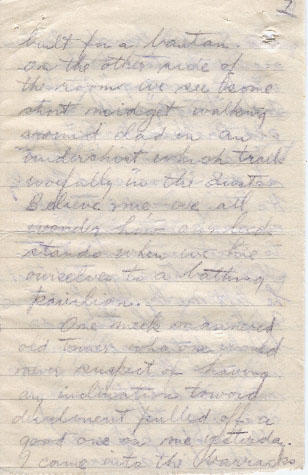 2
built for a bantam.
On the other side of
the room we see some
short midget walking
around clad in an
undershirt which trails
woefully in the dust.
Believe me we all
wonder how
stands when we hie
ourselves to a bathing
pavilion.
One meek mannered
old timer who one would
never suspect of having
any inclination toward
devilment pulled off a
good one on me yesterday.
I came into the barracks